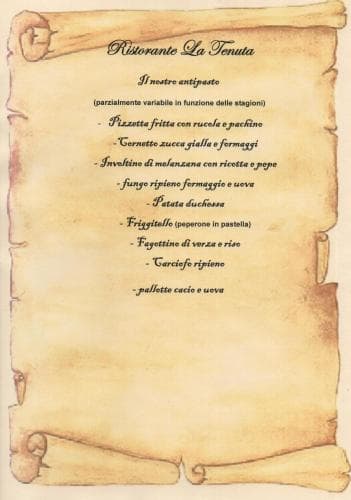 Ristorante La Tenuta
Il nostro antipasto
(parzialmente variabile in funzione delle stagioni)
- Pizzetta fritta con rucola e pachino
-Cornetto zucca gialla e formaggi
- Involtino di melanzana con ricotta e pepe
- fungo ripieno formaggio e uova
- Patata duchessa
- Friggitello (peperone in pastella)
- Fagottino di verza e riso
- Carciofo ripieno
- pallotte cacio e uova